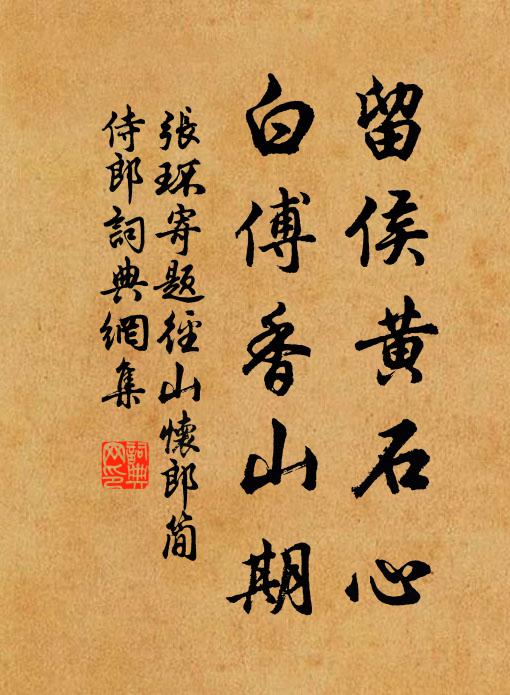 留侯黄石心
白傅香山期
張瓌寄題徑山懷郎簡
侍郎詞典網集
詞典
网印